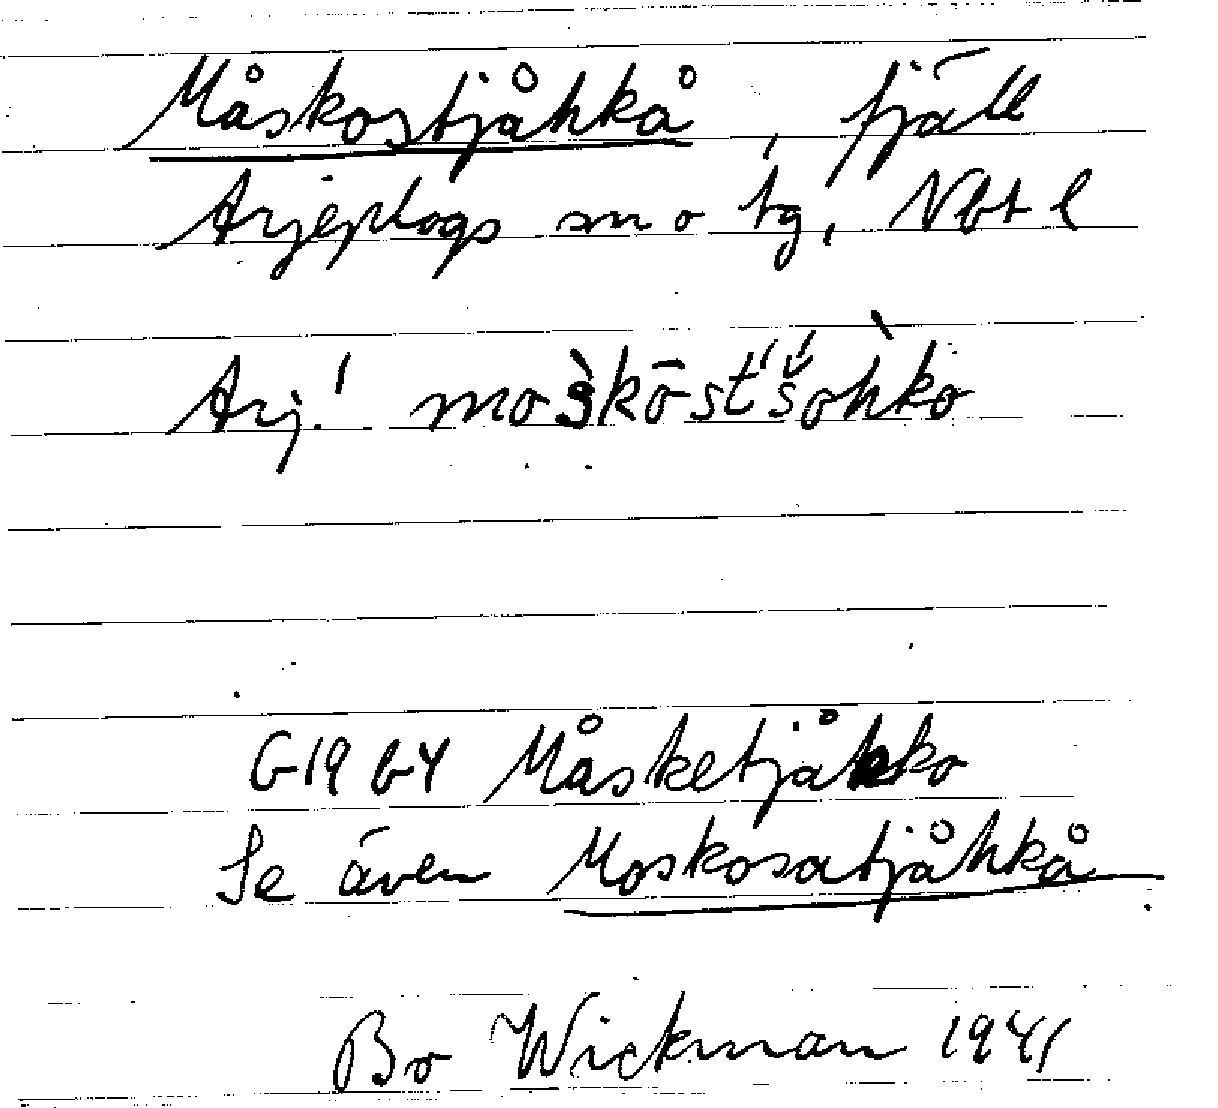 Måskostjåhkå, fjäll
Arjeplogs sn o tg, Nbt l
Arj! mos̀kōst́š́oh̀ko
G19 b4 Måsketjåkko
Se även Moskosatjåhkå
Bo Wickman 1941